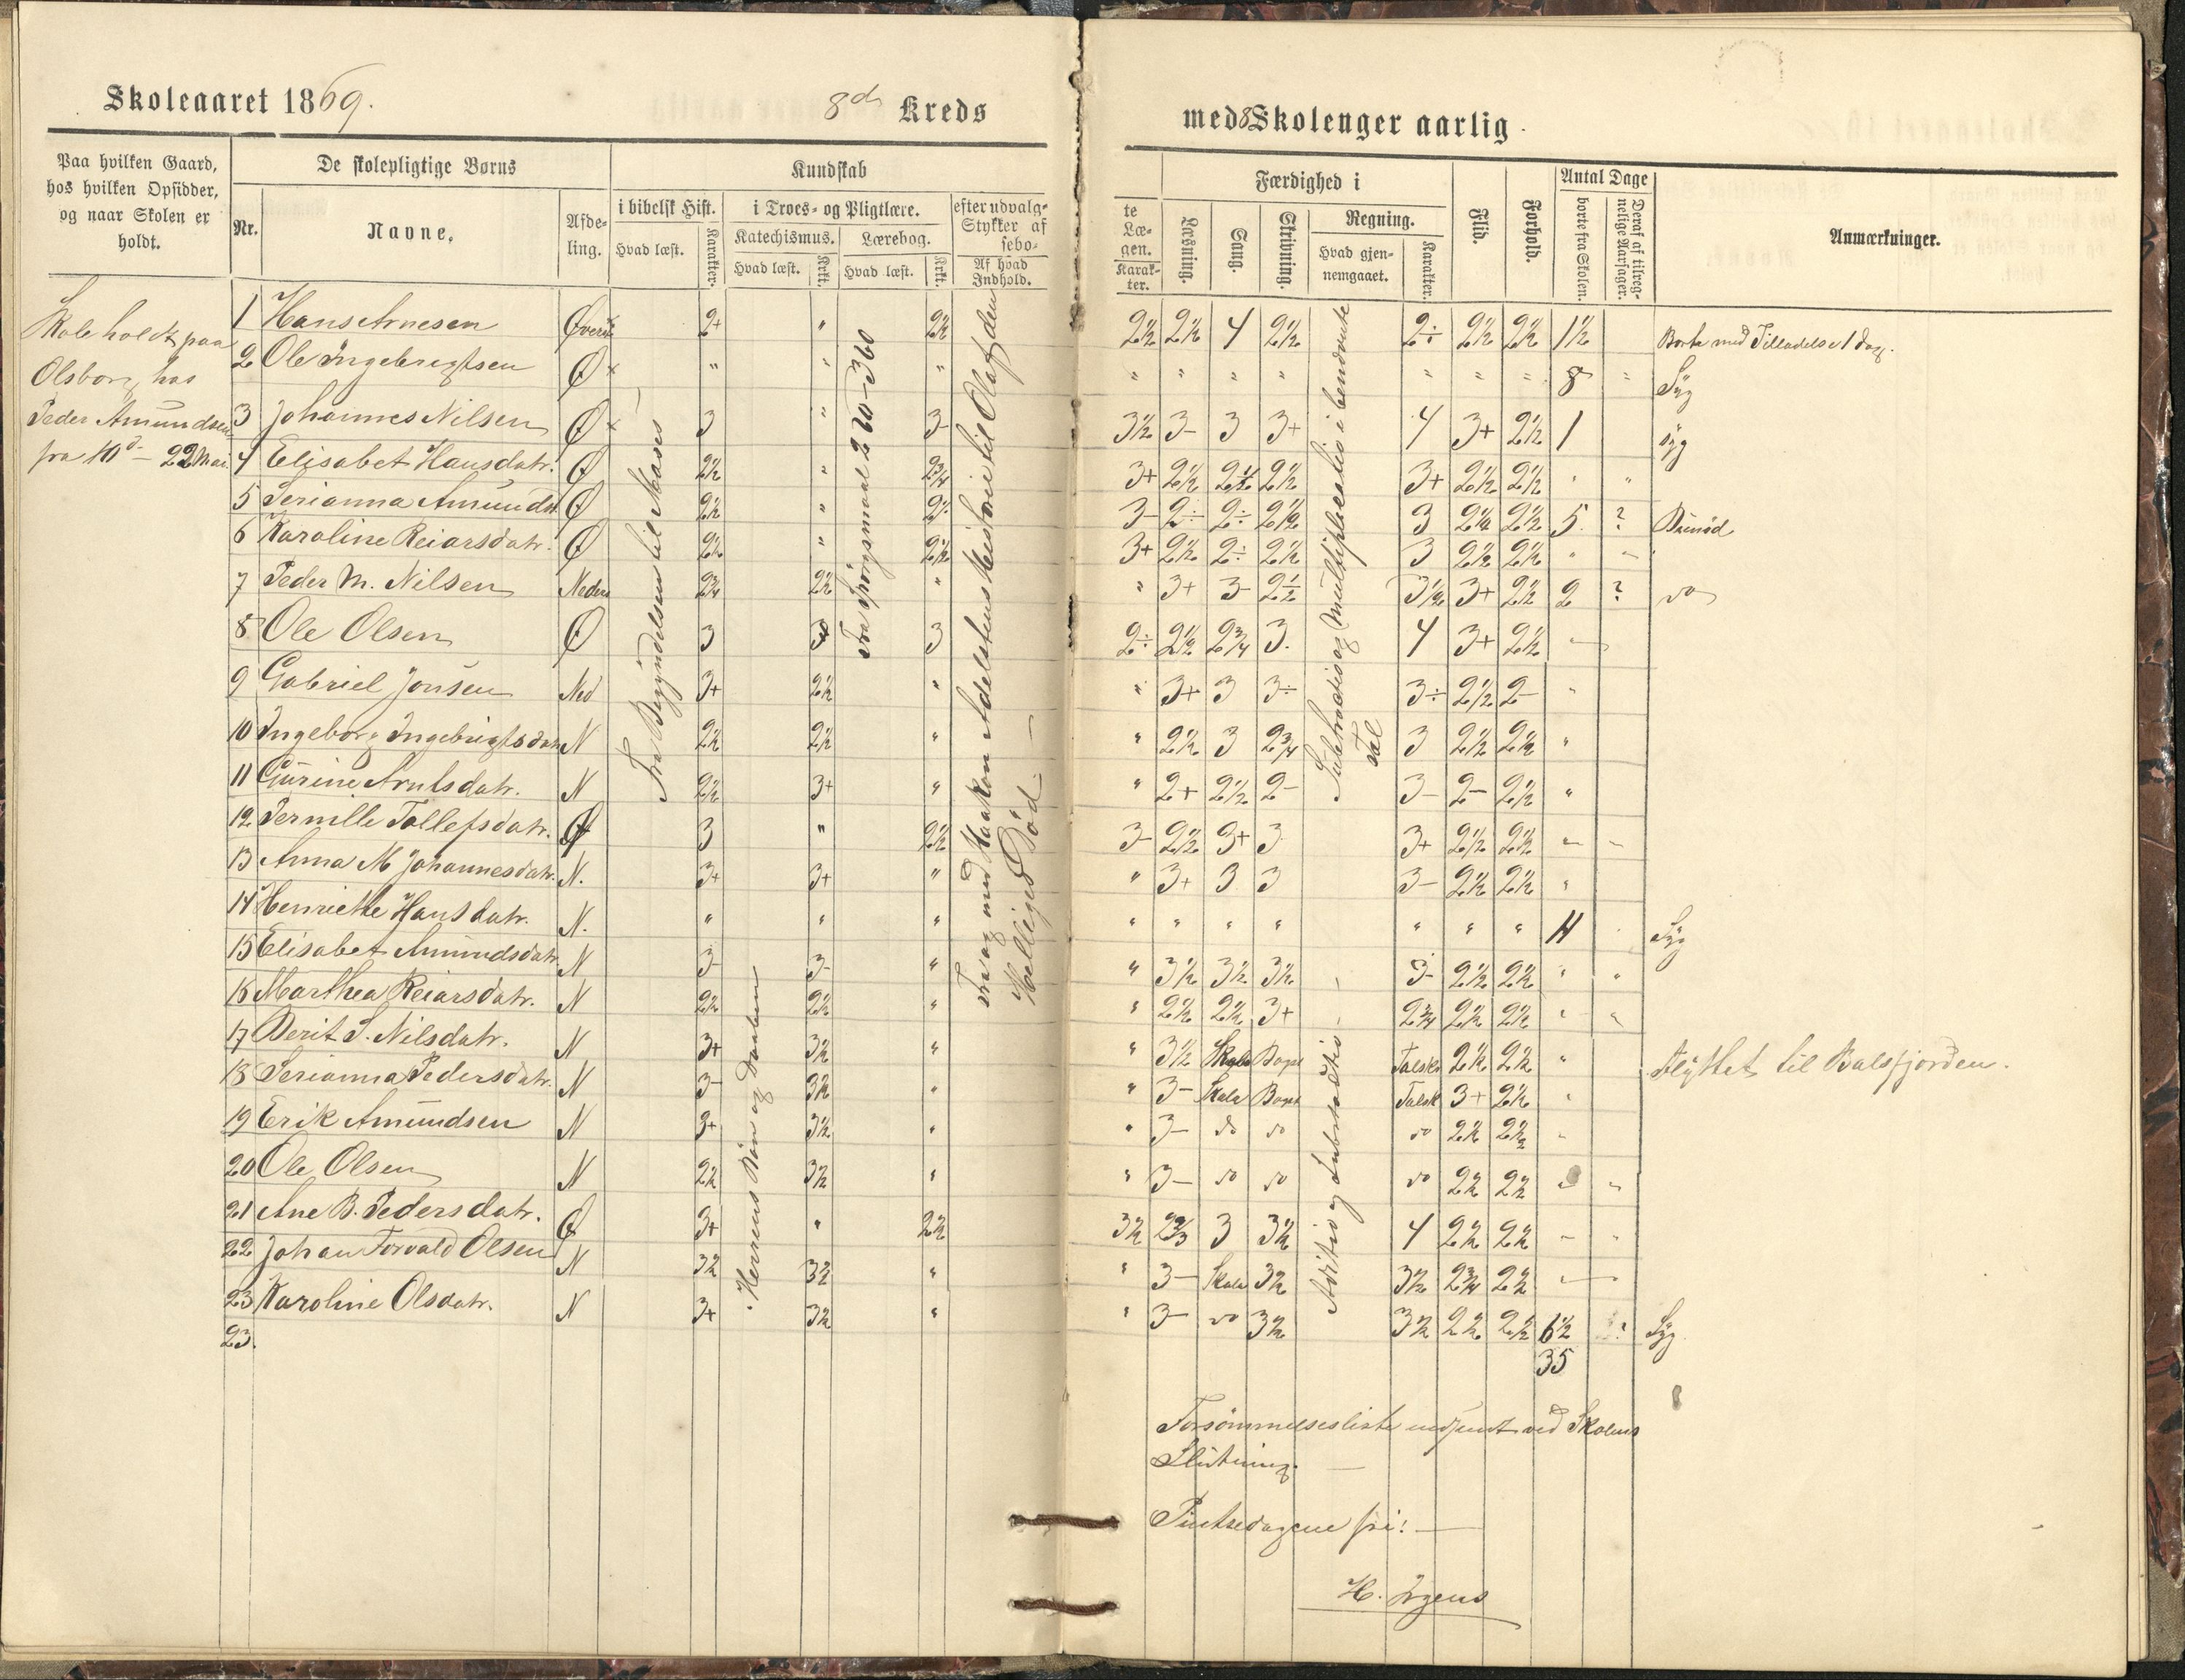 Skoleaaret 1869.
8de Kreds
med 8 Skolenger aarlig.
Paa hvilken Gaard, hos hvilken Opsidder, og naar Skolen er holdt.
De skolepligtige Børns
Nr.
Navne.
Afdeling.
Kundskab
i bibelsk Hist.
Hvad læst.
Karakter.
i Troes- og Pligtlære.
Katechismus.
Hvad læst.
Krkt.
Lærebog.
Hvad læst.
Krkt.
efter udvalg-
Stykker af
sebo-
Af hvad Indhold.
te
Læ-
gen.
Karakter.
Færdighed i
Læsning.
Sang.
Skrivning.
Regning.
Hvad gjennemgaaet.
Karakter.
Flid.
Forhold.
Antal Dage
borte fra Skolen.
Deraf af tilregnelige Aarsager.
Anmærkninger.
Skole holdt paa
Olsborg hos
Peder Amundsen
fra 10d - 22 Mai.
Fra Begyndelsen til Moses
Herrens Bøn og Daaben
Fra Spørgsmaal 220-360
Fra og med Haakon Adelstens Historie til Olaf den
Helliges Død -
Subtraction og Multiplication i benævnte
Tal
Addition og Subtraction
1 Hans Arnesen Øverste 2+ " 2½ 2½ 2½ 4 2½ 2÷ 2½ 2½ 1½ Borte med Tilladelse 1 dag.
2 Ole Ingebrigtsen Ø " " " " " " " " " " 8 " Syg
3 Johannes Nilsen Ø 3 " 3- 3½ 3- 3 3+ 4 3+ 2½ 1 syg
4 Elisabet Hansdatr. Ø 2½ " 2¾ 3+ 2½ 2½ 2½ 3+ 2½ 2½ " "
5 Serianna Amundsd. Ø 2½ " 2½ 3- 2÷ 2÷ 2½ 3 2¼ 2½ 5 ?
6 Karoline Reiarsdatr. Ø 2½ " 2½ 3+ 2½ 2÷ 2½ 3 2½ 2½ " "
7 Peder M. Nilsen Neders 2¾ 2½ " " 3+ 3- 2½ 3½ 3+ 2½ 2 ? do
8 Ole Olsen Ø 3 3 3 2÷ 2½ 2¾ 3. 4 3+ 2½ -
9 Gabriel Jonsen Ned 3+ 2½ " " 3+ 3 3÷ 3÷ 2½ 2- "
10 Ingeborg Ingebrigtsdatr N 2½ 2½ " " 2½ 3 2¾ 3 2½ 2½ "
11 Gurine Arntsdatr. N 2½ 3+ " " 2+ 2½ 2- 3- 2- 2½ "
12 Pernille Tollefsdatr. Ø 3 " 2½ 3- 2½ 3+ 3 3+ 2½ 2½ - -
13 Anna M Johannesdatr. N. 3+ 3+ " " 3+ 3 3 3- 2½ 2½ "
14 Henriette Hansdatr. N. " " " " " " " " " " 11 Syg
15 Elisabet Amundsdatr N 3- 3- " " 3½ 3½ 3½ 3- 2½ 2½ " "
16 Marthea Reiarsdatr. N 2½ 2½ " " 2½ 2½ 3+ 2¾ 2½ 2½ " "
17 Berit S. Nilsdatr. N 3+ 3½ " " 3½ Skala Bogst Talsk 2½ 2½ " Flyttet til Balsfjorden.
18 Serianna Pedersdatr. N 3- 3½ " " 3- Skala Bogst Talsk 3+ 2½ "
19 Erik Amundsen N 3+ 3½ " " 3- do do do 2½ 2½ "
20 Ole Olsen N 2½ 3½ " " 3- do do do 2½ 2½ " "
21 Ane B. Pedersdatr. Ø 3+ " 2½ 3½ 2⅔ 3 3½ 4 2½ 2½ - "
22 Johan Torvald Olsen N 3½ 3½ " " 3- Skala 3½ 3½ 2¾ 2½ -
23 Karoline Olsdatr. N 3+ 3½ " " 3- do 3½ 3½ 2½ 2½ 6½ ? Syg
23.
35
Forsømmelsesliste indsendt ved Skolens
Slutning. -
Pintsedagene fri! -
H. Irgens